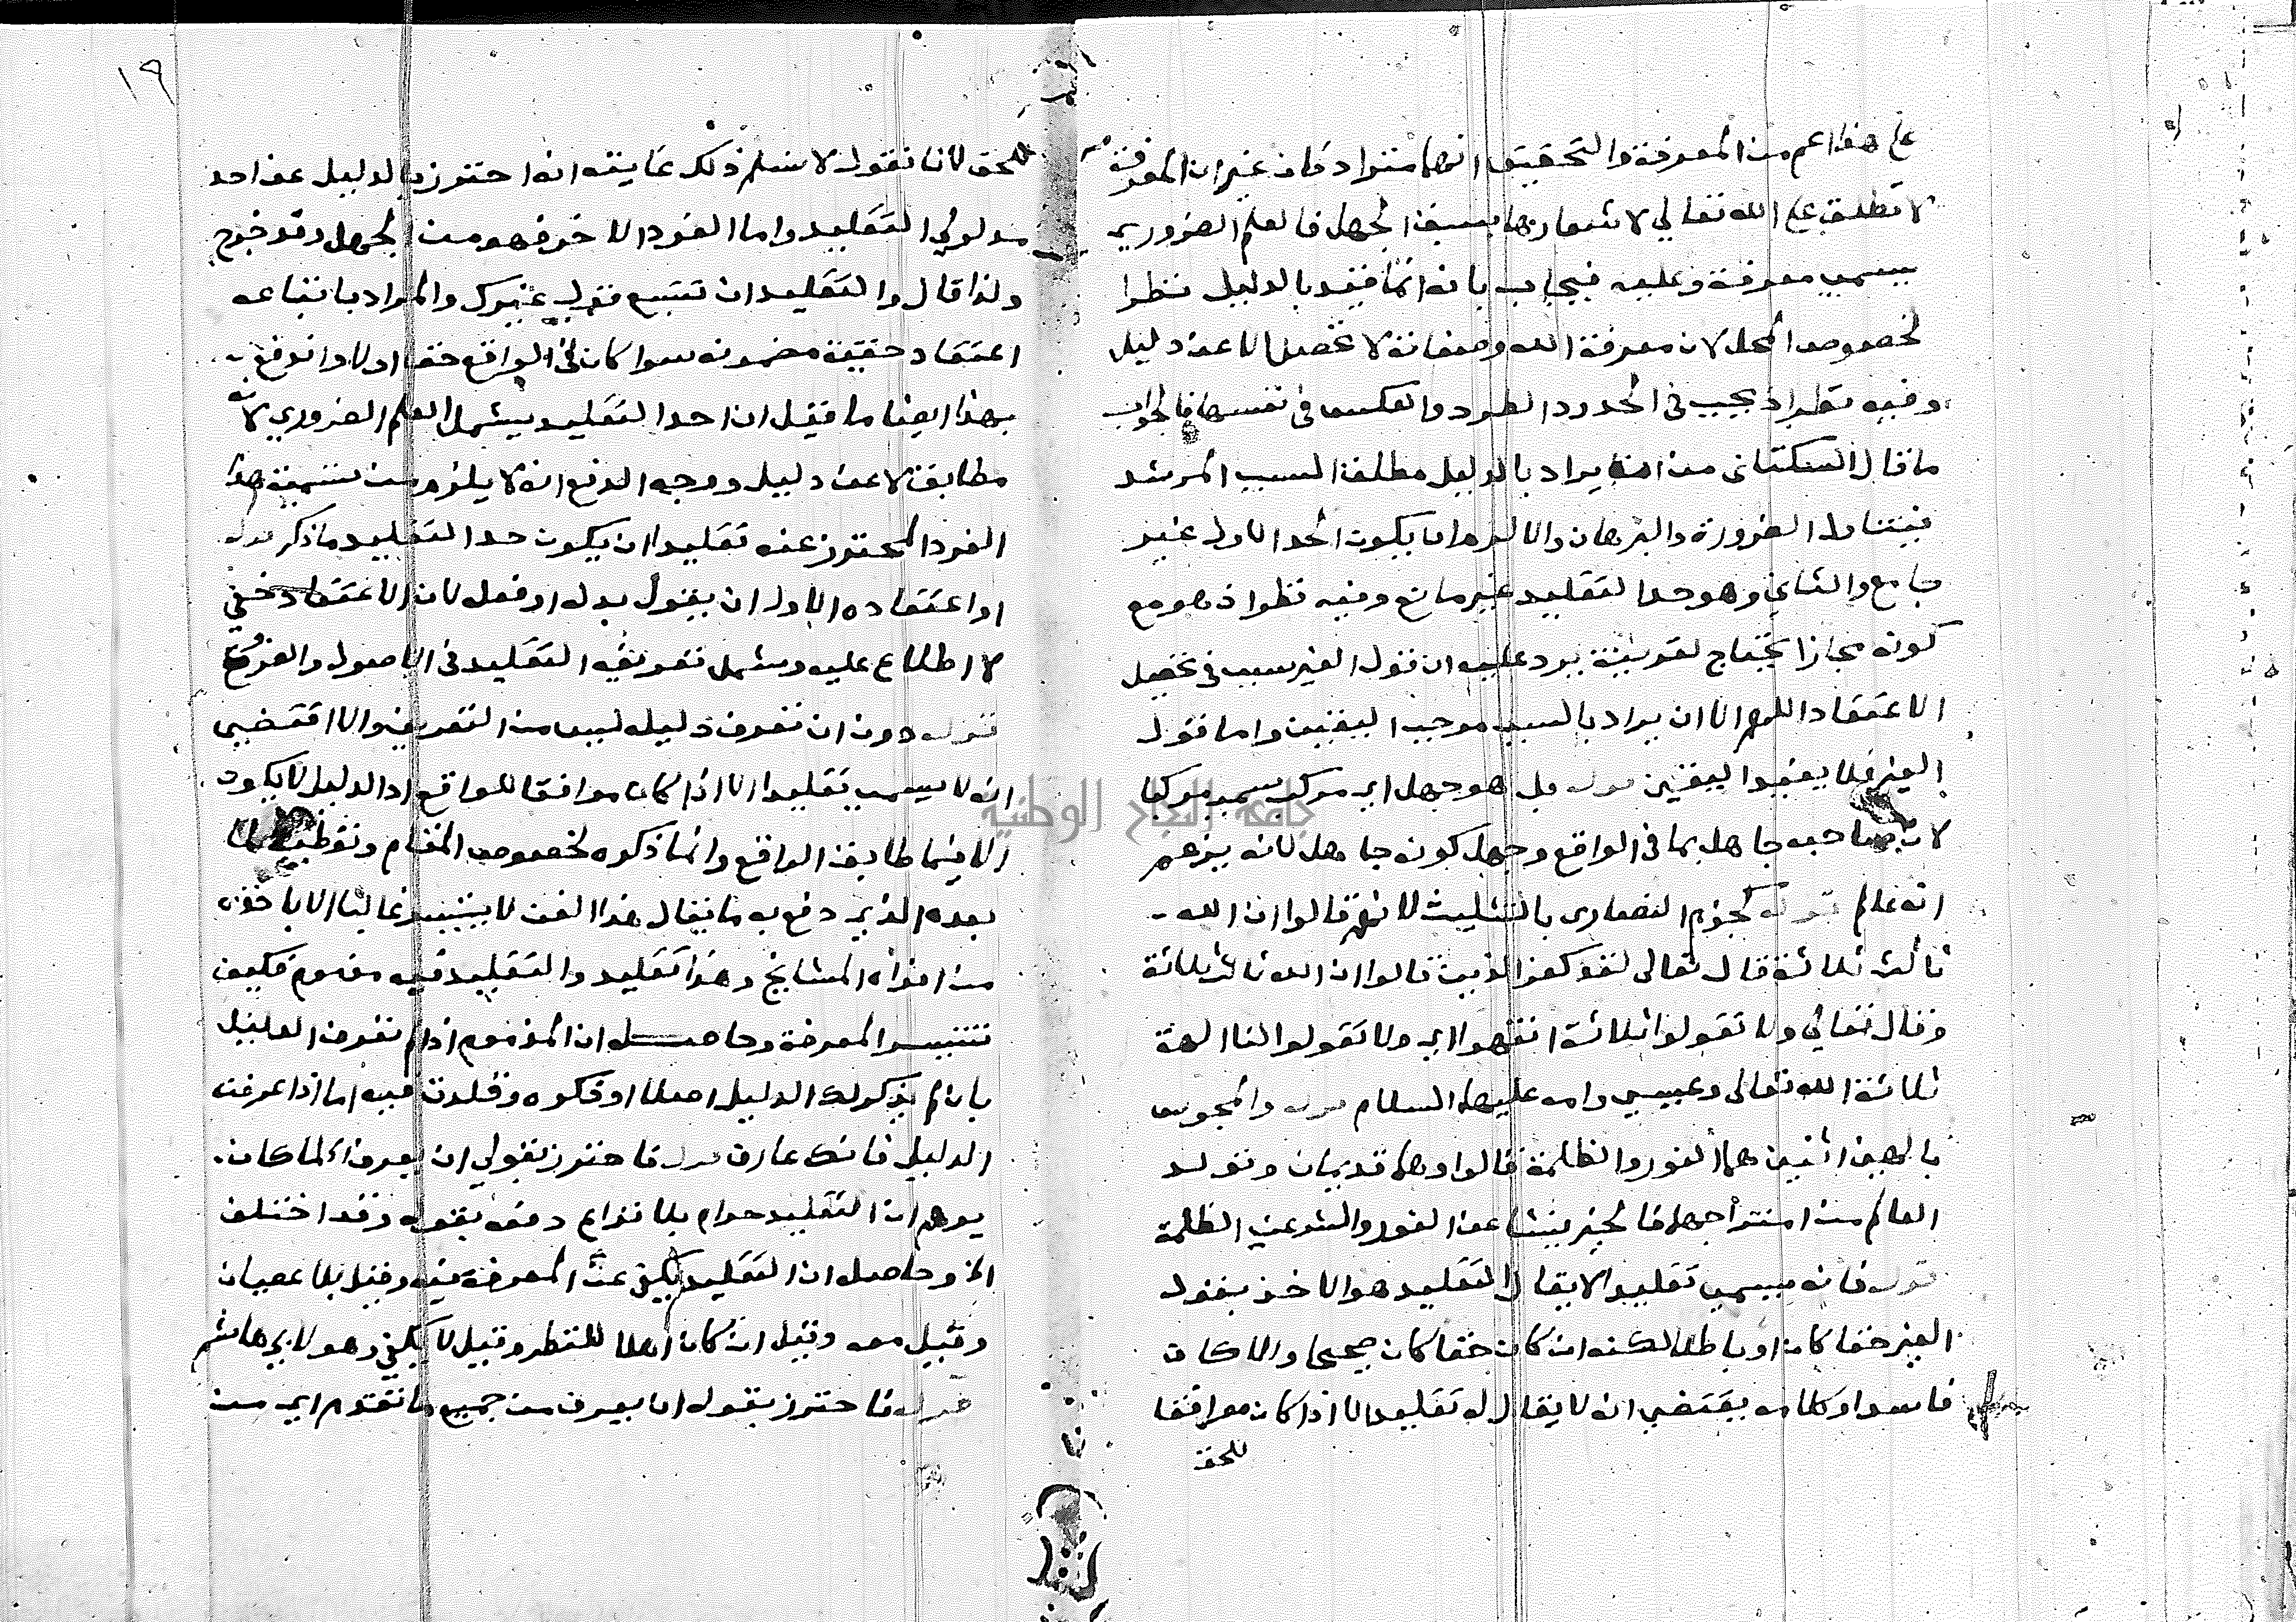 على هذا اعم من المعرفة والتحقيق انهما مترادفان غير ان المعرفة
لا تطلق على الله تعالى لاشعارها بسبق الجهل فالعلم الضروري
يسمى معرفة وعليه فيجاب بانه انما قيد بالدليل نظرا
لخصوص المحل لان معرفة الله وصفاته لا تحصل الا عن دليل
وفيه نظر اذ يجب في الحدود الطرد والعكس في نفسها فالجواب
ما قال السكتاني من انه يراد بالدليل مطلق السبب المرشد
فيتناول الضرورة والبرهان والا لزم ان يكون الحد الاول غير
جامع والثاني وهو حد التقليد غير مانع وفيه نظر اذ هو مع
كونه مجازا يحتاج لقرينة يرد عليه ان قول الغير سبب في تحصيل
الاعتقاد اللهم الا ان يراد بالسبب موجب اليقين واما قول
الغير فلا يفيد اليقين قوله بل هو جهل اي مركب سمي مركبا
لان صاحبه جاهل بما في الواقع وجهل كونه جاهل لانه يزعم
انه عالم قوله كجزم النصارى بالتثليث لانهم قالوا ان الله
ثالث ثلاثة قال تعالى لقد كفر الذين قالوا ان الله ثالث ثلاثة
وقال تعالى ولا تقولوا ثلاثة انتهوا اي ولا تقولوا لنا الهة
ثلاثة الله تعالى وعيسى وامه عليهما السلام قوله والمجوس
بالهين اثنين هما النور والظلمة قالوا وهما قديمان وتولد
العالم من امتزاجهما فالخير ينشا عن النور والشر عن الظلمة
قوله فانه يسمى تقليدا لا يقال التقليد هو الاخذ بقول
الغير حقا كان او باطلا لكنه ان كان حقا كان صحيحا والا كان
فاسدا وكلامه يقتضي انه لا يقال له تقليد الا اذا كان موافقا
للحق
١٩
للحق لانا نقول لا نسلم ذلك غايته انه احترز بالدليل عن احد
مدلولي التقليد واما الفرد الاخر فهو من الجهل وقد خرج
ولذا قال والتقليد ان تتبع قول غيرك والمراد باتباعه
اعتقاد حقيقة مضمونه سوا كان في الواقع حقا او لا واندفع
بهذا ايضا ما قيل ان احد التقليد يشمل العلم الضروري لانه
مطابق لا عن دليل ووجه الدفع انه لا يلزم من تسمية هذا
الفرد المحترز عنه تقليدا ان يكون حد التقليد ما ذكر قوله
او اعتقاده الاولى ان يقول بدله او فعله لان الاعتقاد خفي
لا اطلاع عليه ويشمل تعريفه التقليد في الاصول والفروع
قوله دون ان تعرف دليله ليس من التعريف والا اقتضى
انه لا يسمى تقليدا الا اذا كان موافقا للواقع اذ الدليل لا يكون
الا فيما طابق الواقع وانما ذكره لخصوص المقام وتوطية لما
بعده الذي دفع به ما يقال هذا الفن لا يتيسر غالبا الا باخذه
من افواه المشايخ وهذا تقليد والتقليد فيه مذموم فكيف
تتيسر المعرفة وحاصله ان المذموم اذا لم تعرف الدليل
بان لم يذكر لك الدليل اصلا او ذكره وقلدت فيه اما اذا عرفت
الدليل فانك عارف قوله فاحترز بقولي ان يعرف الخ لما كان
يوهم ان التقليد حرام بلا نزاع دفعه بقوله وقد اختلف
الخ وحاصله ان التقليد يكفي عن المعرفة فيه وقيل بلا عصيان
وقيل معه وقيل ان كان اهلا للنظر وقيل لا يكفي وهو لابي هاشم
قوله فاحترز بقوله ان يعرف من جميع ما تقدم اي من